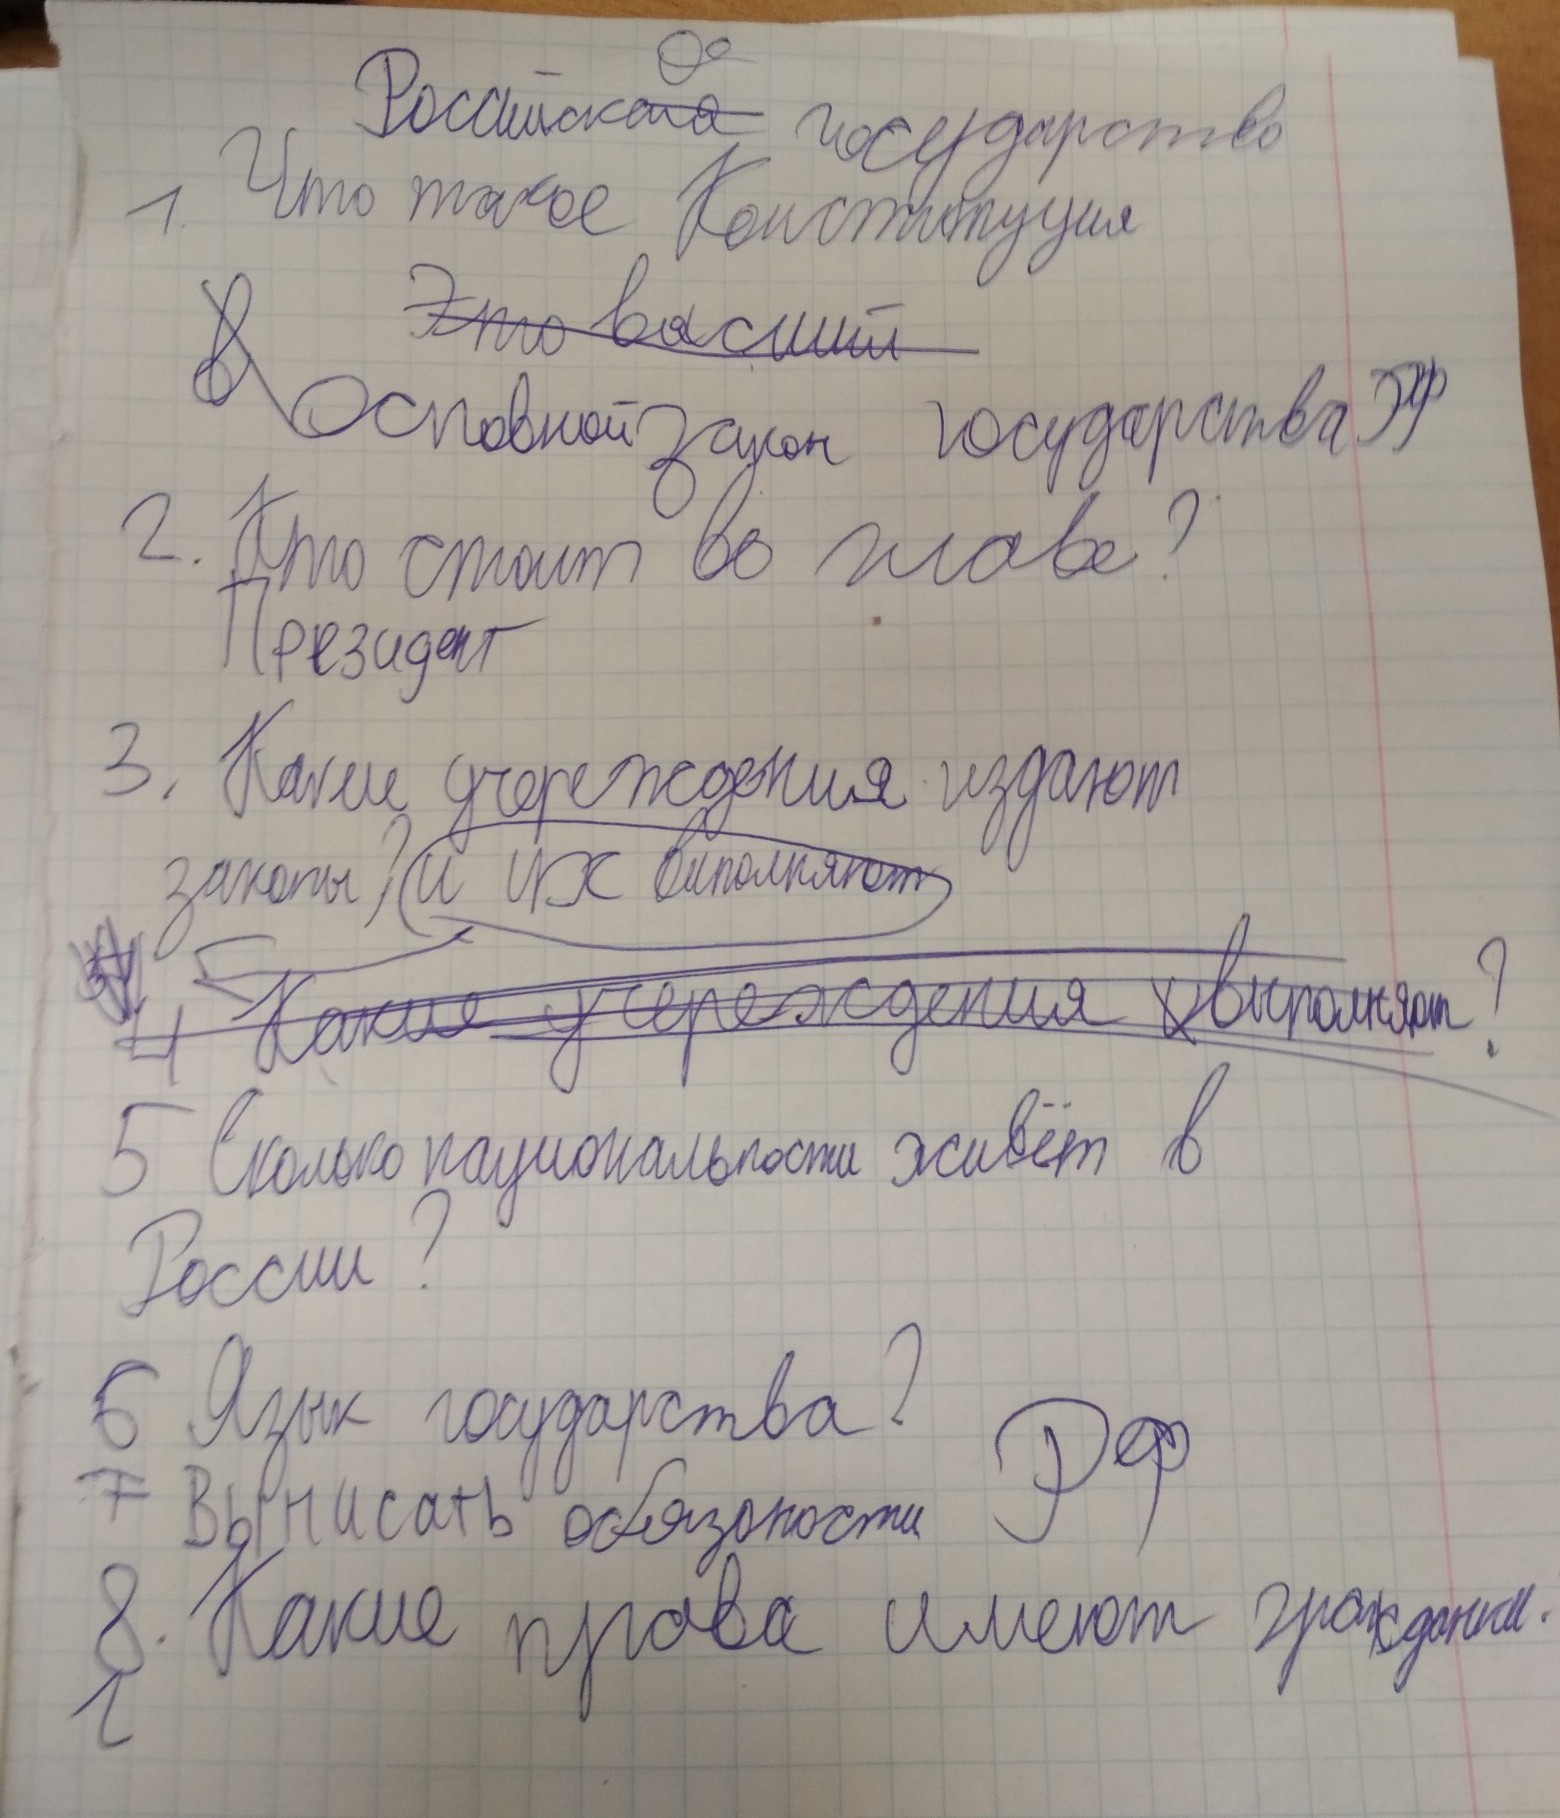 Российская ое государство
1. Что такое Конституция
Это васший
Основной закон государства РФ
2. Кто стоит во главе?
Президент
3. Какие учереждения издают
законы? и их виполняют
4 Какие учереждения выполняют?
5 Сколько национальности живёт в
России?
6 Язык государства?
7 Выписать обязоности РФ
8. Какие права имеют граждании.